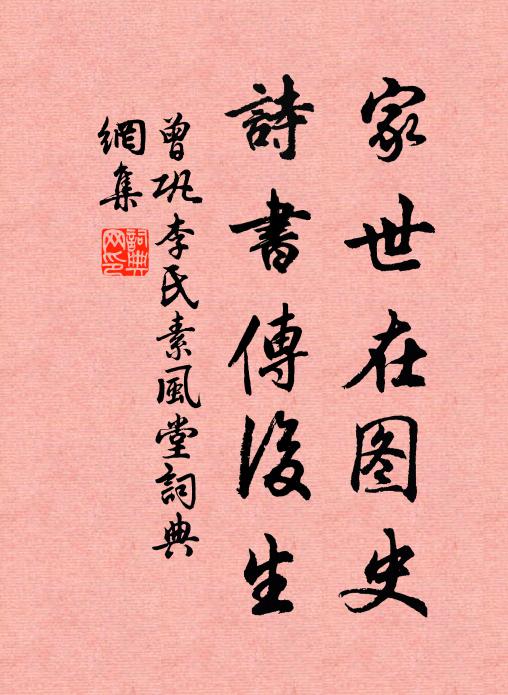 家世在图史
詩書傳後生
曾巩李氏素風堂詞典
網集
詞典网印